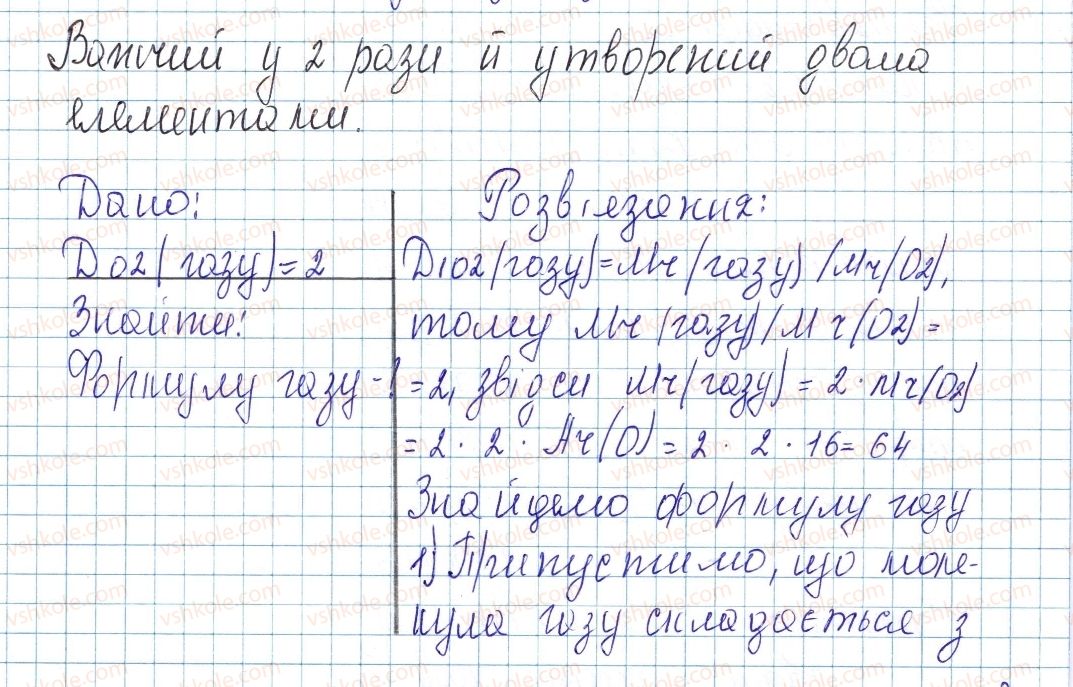 Важчий у 2 рази й утворений двома
елементами.
Дано:
D O2 (газу) = 2
Знайти:
Формулу газу - ?
Розв'язання:
D O2 (газу) = Mr (газу) / Mr (O2),
тому Mr (газу) / Mr (O2) =
= 2, звідси Mr (газу) = 2 · Mr (O2)
= 2 · 2 · Ar (O) = 2 · 2 · 16 = 64
Знайдемо формулу газу
1) Припустимо, що моле-
кула газу складається з